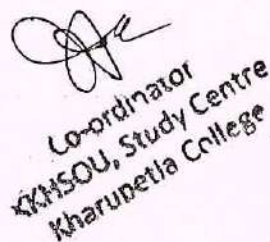 Co-ordinator
KKHSOU, Study Centre
Kharupetia College